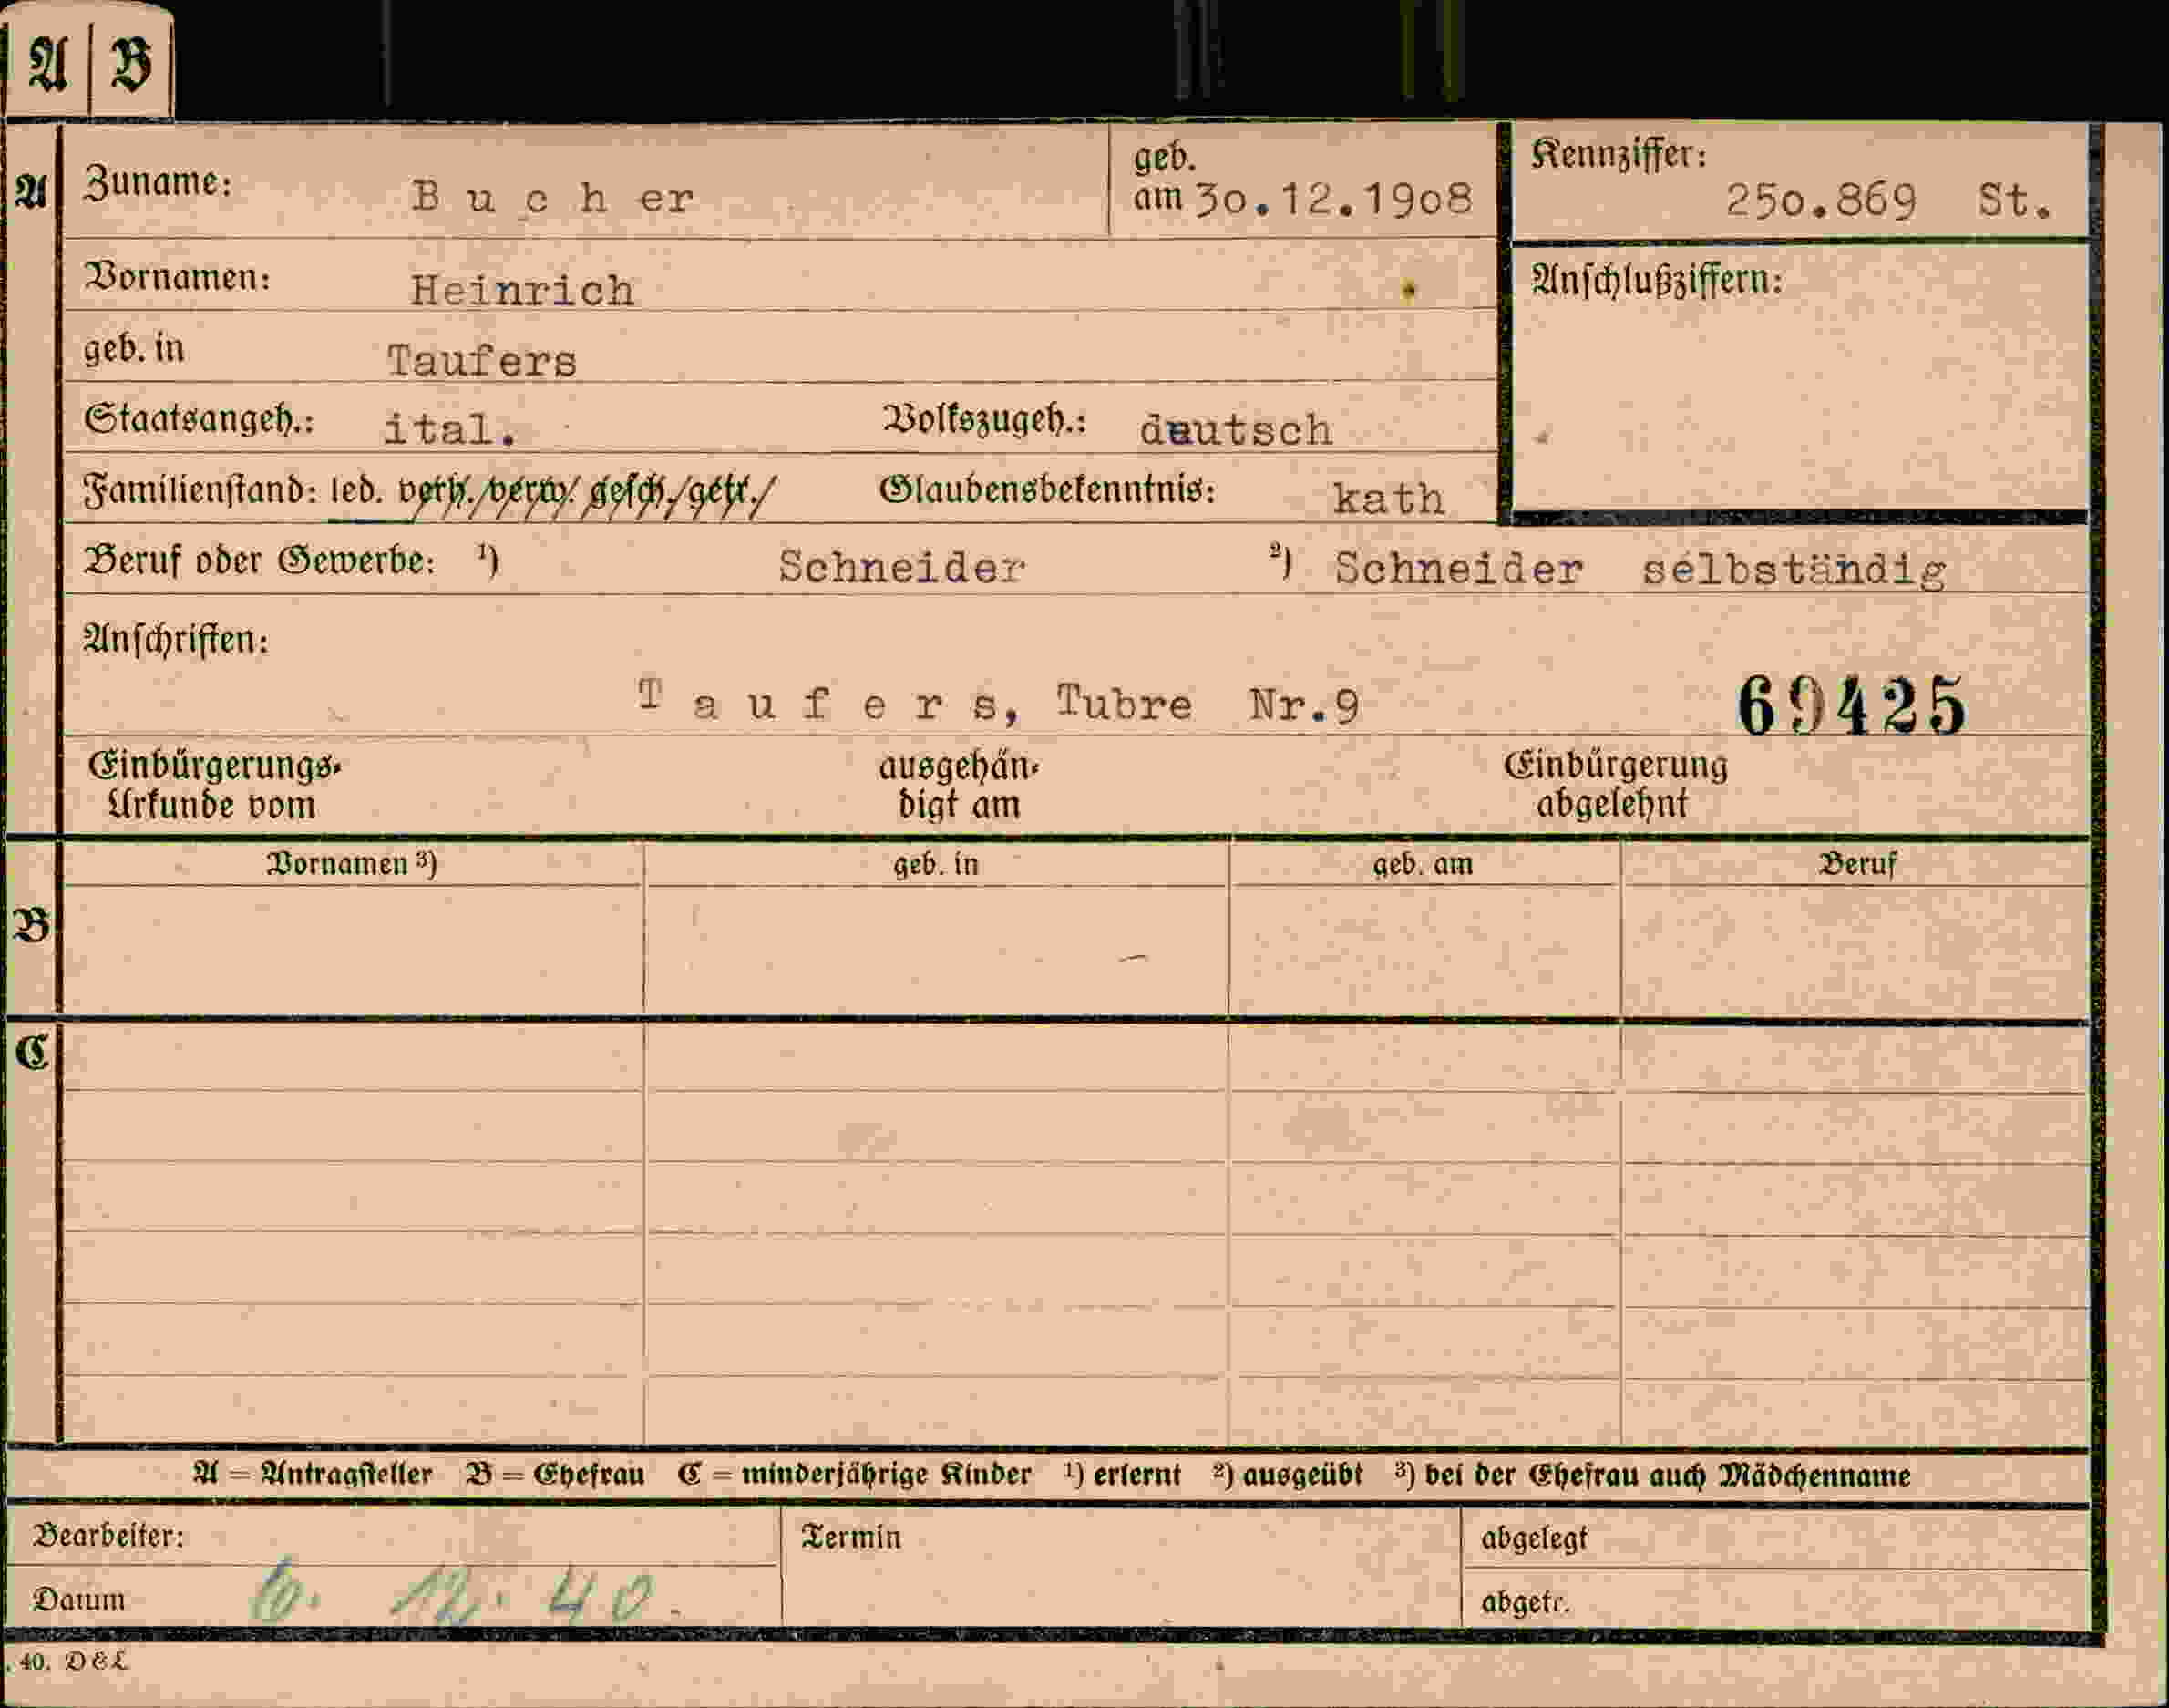 A B
A Zuname: B u c h er geb. am 30.12.1908 Kennziffer: 250.869 St.
Vornamen: Heinrich Anschlußziffern:
geb. in Taufers
Staatsangeh.: ital. Volkszugeh.: deutsch
Familienstand: led. verh./verw./gesch./getr./ Glaubensbekenntnis: kath
Beruf oder Gewerbe: ¹) Schneider ²) Schneider selbständig
Anschriften:
T a u f e r s, Tubre Nr.9 69425
Einbürgerungs- ausgehän- Einbürgerung
Urkunde vom digt am abgelehnt
Vornamen ³) geb. in geb. am Beruf
B
C
A = Antragsteller B = Ehefrau C = minderjährige Kinder ¹) erlernt ²) ausgeübt ³) bei der Ehefrau auch Mädchenname
Bearbeiter: Termin abgelegt
Datum 6. 12. 40. abgetr.
. 40. D&L